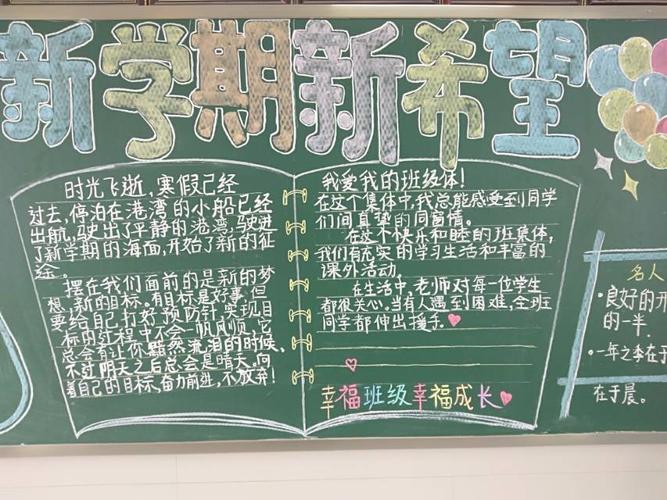 新学期新希望
时光飞逝,寒假已经
过去,停泊在港湾的小船已经
出航,驶出了平静的港湾,驶进
了新学期的海面,开始了新的征
途。
摆在我们面前的是新的梦
想,新的目标。有目标是好事,但
要给自己打好预防针,实现目
标的过程中不会一帆风顺,它
总会有让你黯然流泪的时候,
不过阴天之后总会是晴天,向
着自己的目标,奋力前进,不放弃!
我爱我的班级体!
在这个集体中,我总能感受到同学
们间真挚的同窗情。
在这个快乐和睦的班集体,
我们有充实的学习生活和丰富的
课外活动。
在生活中,老师对每一位学生
都很关心。当有人遇到困难,全班
同学都伸出援手。
幸福班级幸福成长
名人
·良好的
的一半。
·一年之季在于
在于晨。